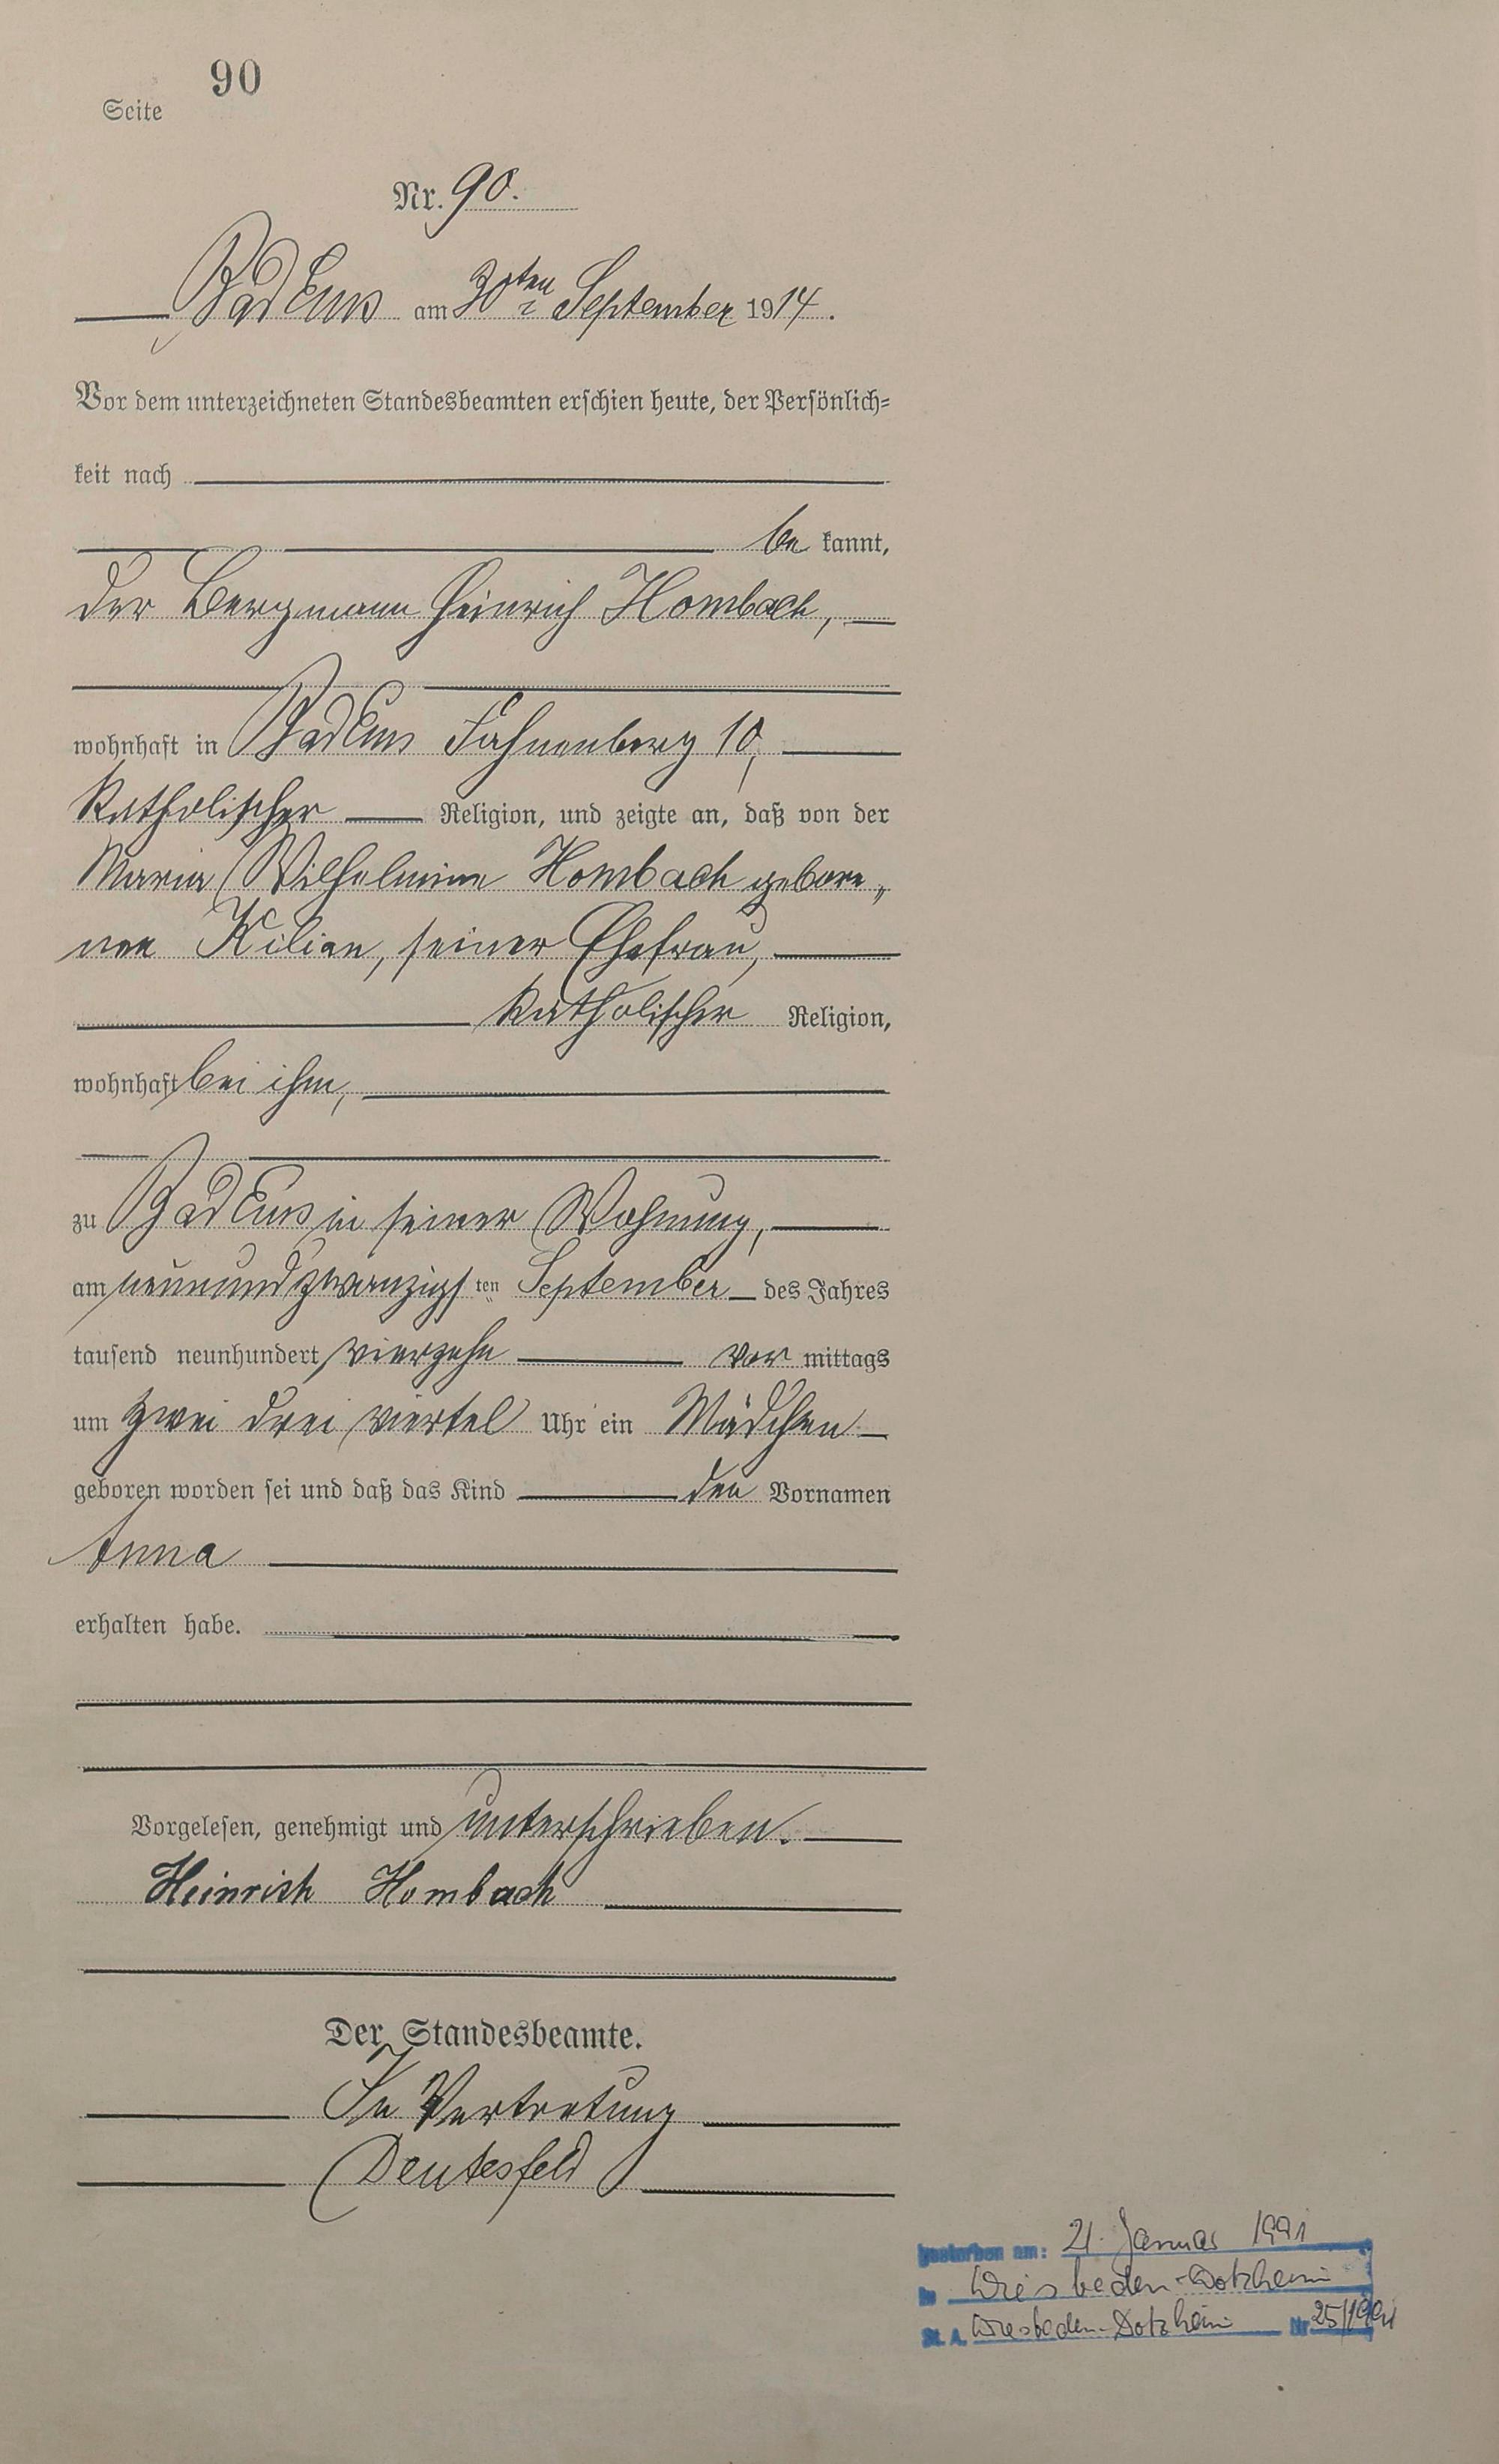 90
Seite
Nr. 90.
Bad Ems am 30ten September 1914.
Vor dem unterzeichneten Standesbeamten erschien heute, der Persönlich-
keit nach
be kannt,
der Bergmann Heinrich Hombach,
wohnhaft in Bad Ems Fahnenberg 10,
katholischer Religion, und zeigte an, daß von der
Maria Wilhelmine Hombach gebore„
nen Kilian, seiner Ehefrau,
katholischer Religion,
wohnhaft bei ihm,
zu Bad Ems in seiner Wohnung,
am neunundzwanzigsten September des Jahres
tausend neunhundert vierzehn vor mittags
um zwei drei viertel Uhr ein Mädchen
geboren worden sei und daß das Kind den Vornamen
Anna
erhalten habe.
Vorgelesen, genehmigt und unterschrieben.
Heinrich Hombach
Der Standesbeamte.
In Vertretung
Deutesfeld
gestorben am: 21. Januar 1991
in Wiesbaden-Dotzheim
St. A. Wiesbaden-Dotzheim Nr 25/1991